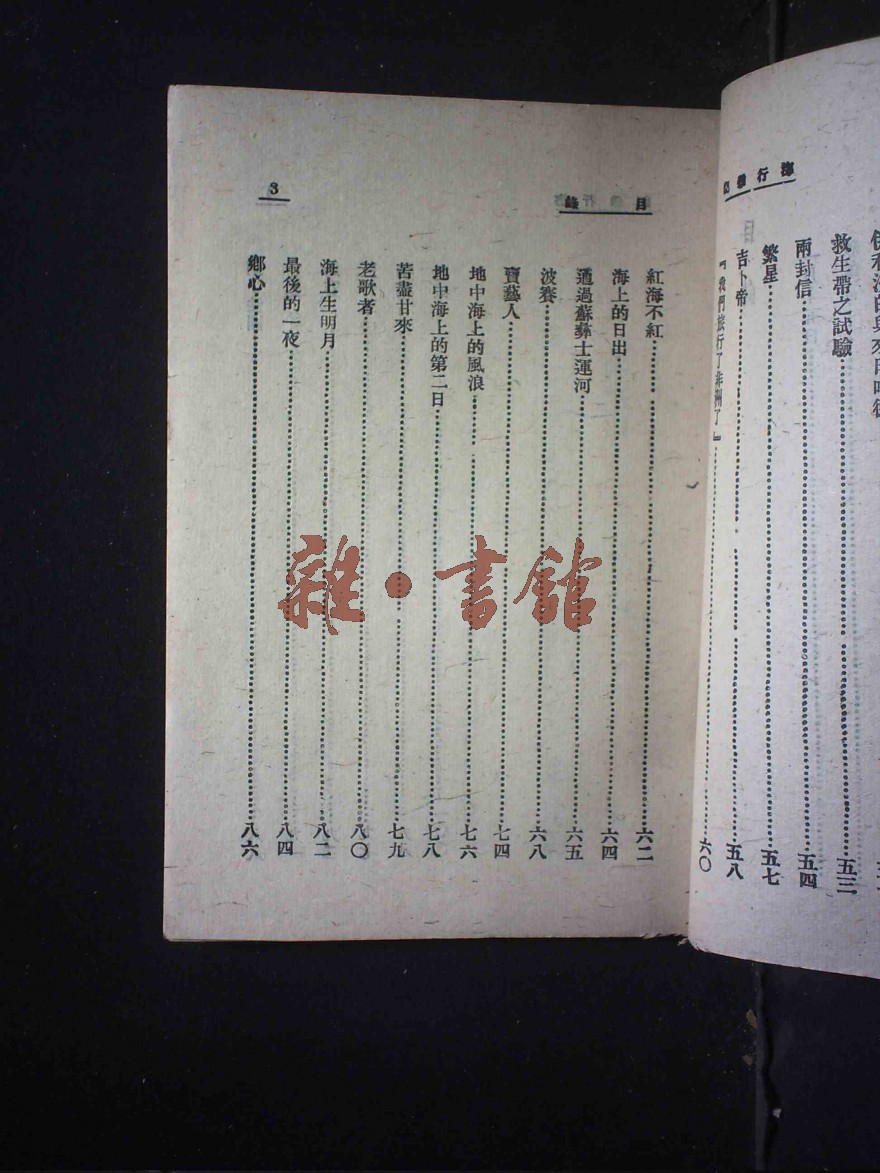 海行雜
救生帶之試驗……五三
兩封信……五四
繁星……五七
吉卜帝……五八
『我們旅行了非洲了』……六〇
目錄
3
紅海不紅……六二
海上的日出……六四
通過蘇彝士運河……六五
波賽……六八
賣藝人……七四
地中海上的風浪……七六
地中海上的第二日……七八
苦盡甘來……七九
老歌者……八〇
海上生明月……八二
最後的一夜……八四
鄉心……八六
雜·書館